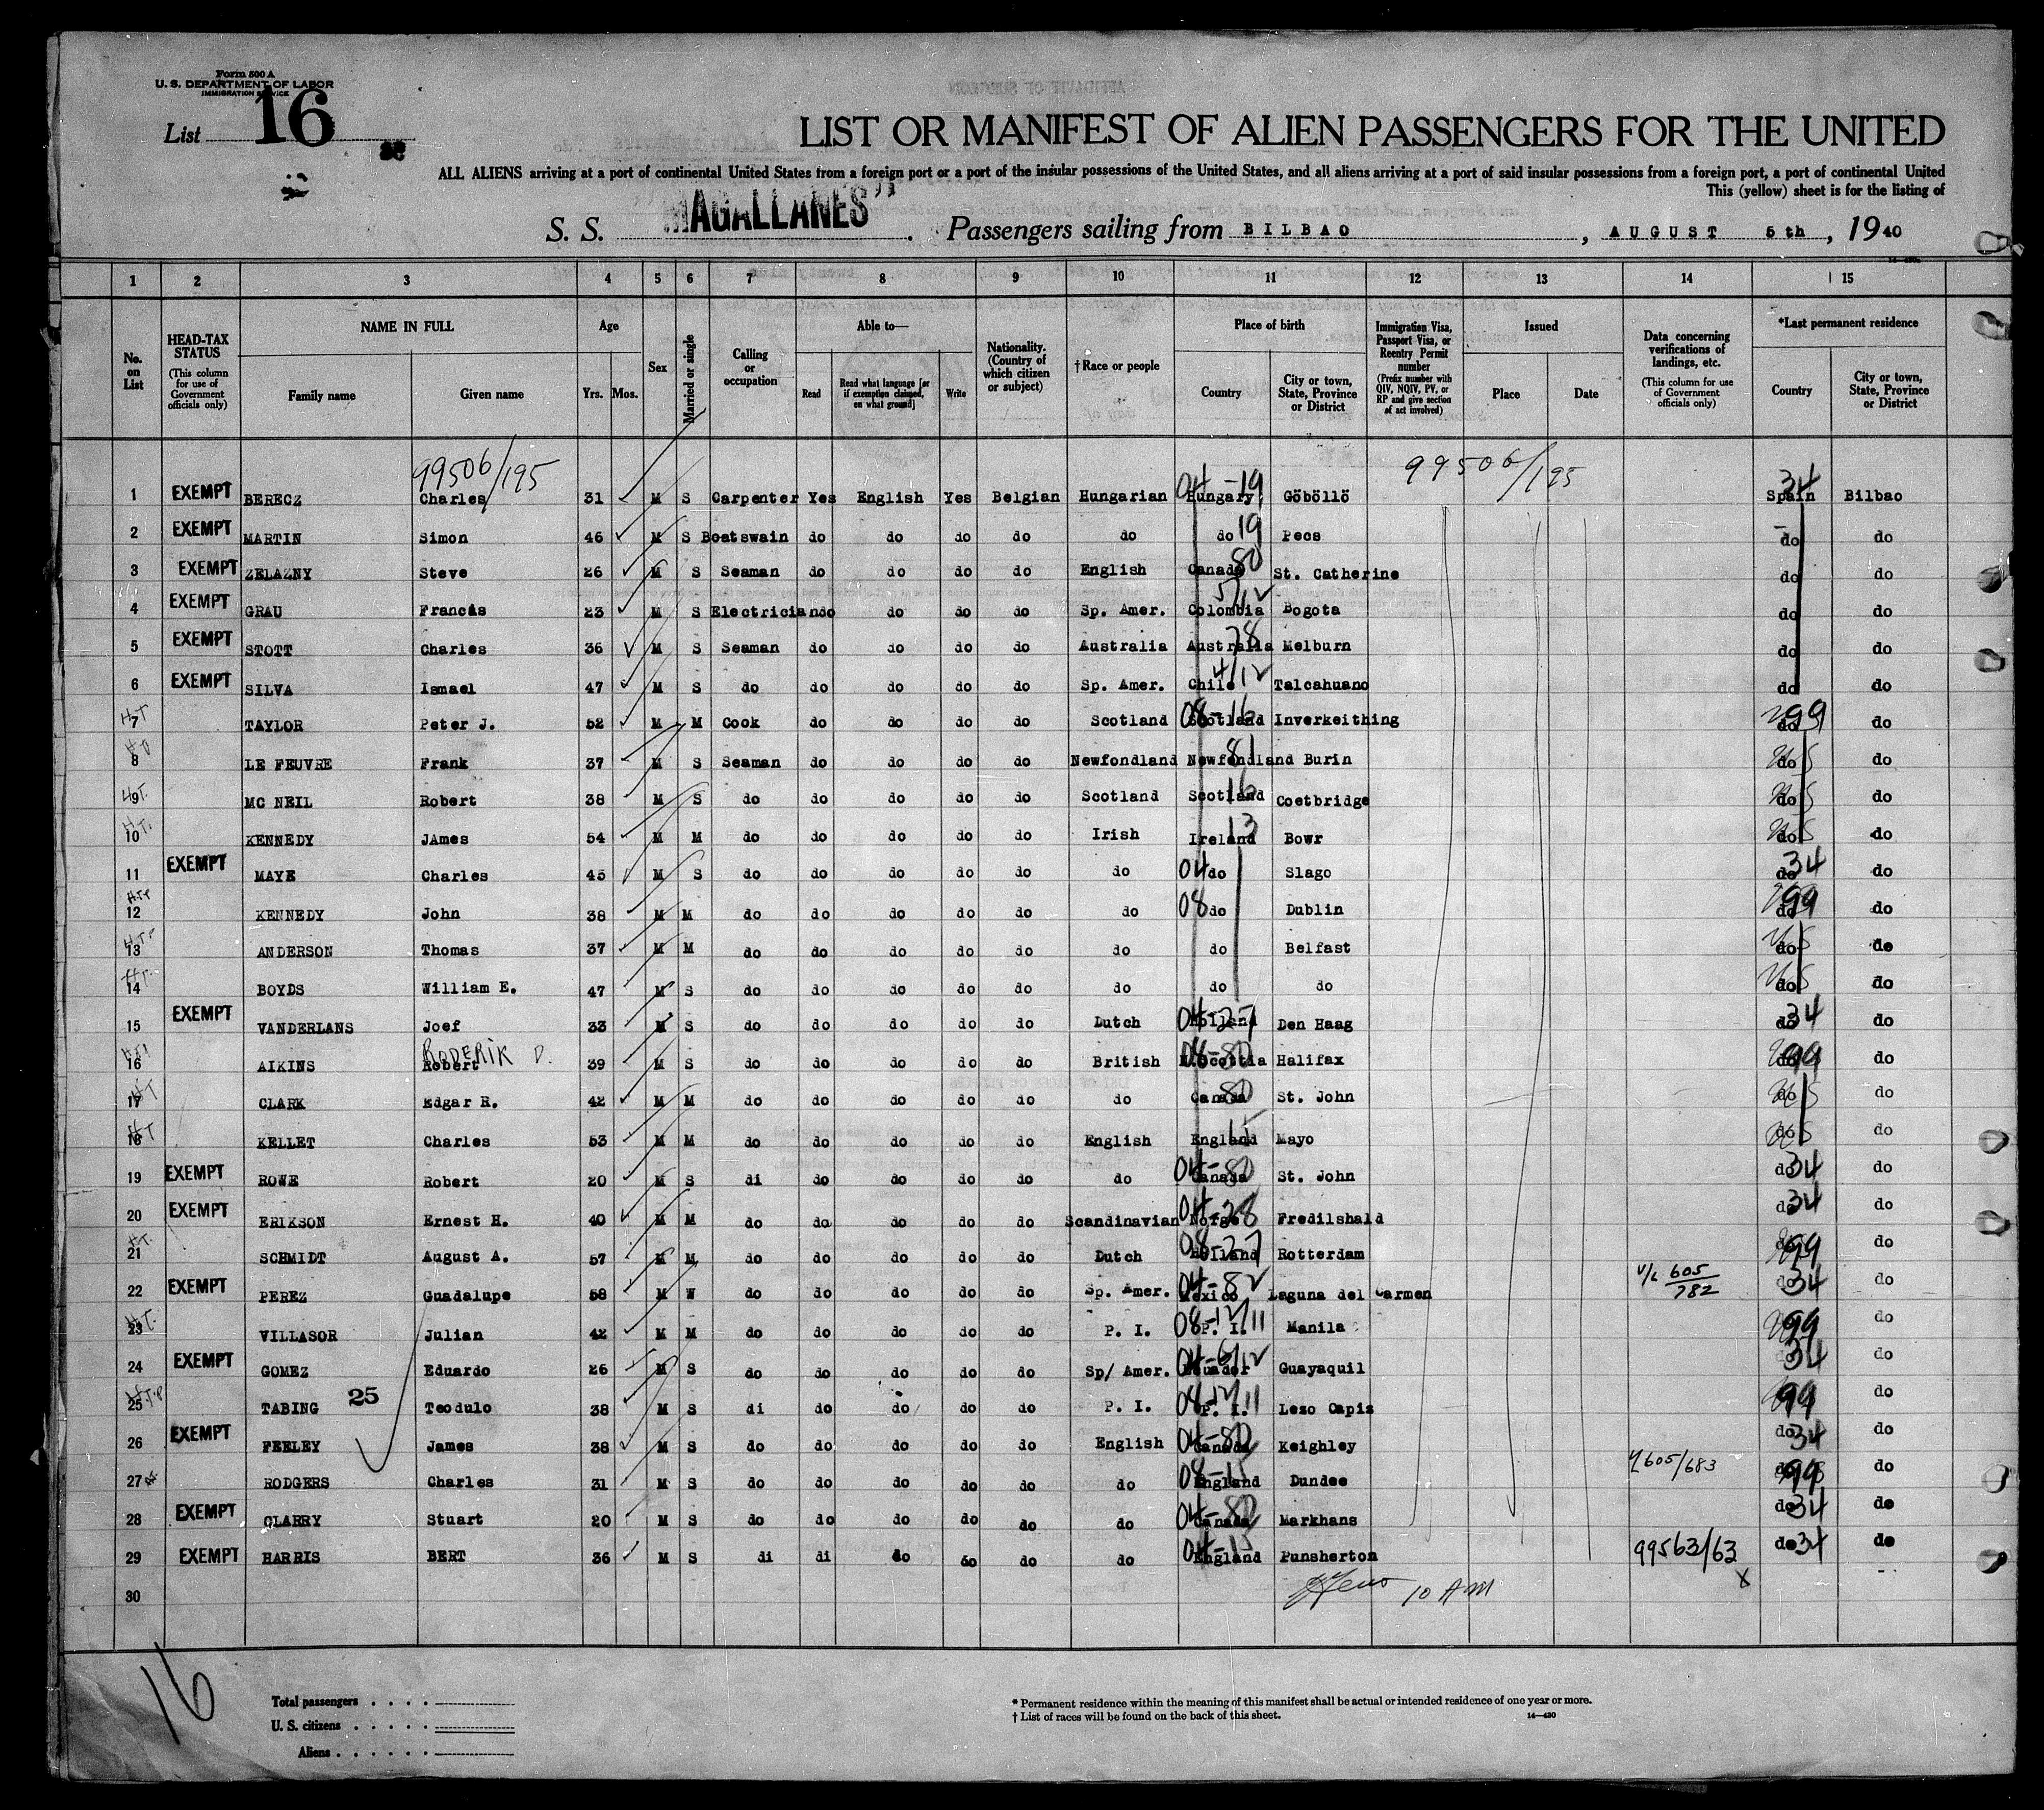 Form 500 A
U. S. DEPARTMENT OF LABOR
IMMIGRATION SERVICE
List 16
LIST OR MANIFEST OF ALIEN PASSENGERS FOR THE UNITED
ALL ALIENS arriving at a port of continental United States from a foreign port or a port of the insular possessions of the United States, and all aliens arriving at a port of said insular possessions from a foreign port, a port of continental United
This (yellow) sheet is for the listing of
S. S. MAGALLANES". Passengers sailing from BILBAO, AUGUST 5th, 1940
1 2 3 4 5 6 7 8 9 10 11 12 13 14 15
No. on List
HEAD-TAX STATUS (This column for use of Government officials only)
NAME IN FULL Family name Given name
Age Yrs. Mos.
Sex
Married or single
Calling or occupation
Able to— Read Read what language [or if exemption claimed, on what ground] Write
Nationality. (Country of which citizen or subject)
†Race or people
Place of birth Country City or town, State, Province or District
Immigration Visa, Passport Visa, or Reentry Permit number (Prefix number with QIV, NQIV, PV, or RP and give section of act involved)
Issued Place Date
Data concerning verifications of landings, etc. (This column for use of Government officials only)
*Last permanent residence Country City or town, State, Province or District
99506/195 99506/195
1 EXEMPT BERECZ Charles 31 M S Carpenter Yes English Yes Belgian Hungarian 04-19 Hungary Göböllö 34 Spain Bilbao
2 EXEMPT MARTIN Simon 46 M S Boatswain do do do do do do 19 Pecs do do
3 EXEMPT ZELAZNY Steve 26 M S Seaman do do do do English Canada 80 St. Catherine do do
4 EXEMPT GRAU Francis 23 M S Electrician do do do do Sp. Amer. Colombia 5/12 Bogota do do
5 EXEMPT STOTT Charles 36 M S Seaman do do do do Australia Australia 78 Melburn do do
6 EXEMPT SILVA Ismael 47 M S do do do do do Sp. Amer. Chile 4/12 Talcahuano do do
7 HT TAYLOR Peter J. 52 M M Cook do do do do Scotland 08-16 Scotland Inverkeithing do 99 do
8 LE FEUVRE Frank 37 M S Seaman do do do do Newfondland Newfondland 81 Burin do do
9 HT. MC NEIL Robert 38 M S do do do do do Scotland Scotland 16 Coetbridge do do
10 HT. KENNEDY JAmes 54 M M do do do do do Irish Ireland 13 Bowr do do
11 EXEMPT MAYE Charles 45 M S do do do do do do 04 do Slago do 34 do
12 KENNEDY John 38 M M do do do do do do 08 do Dublin do 99 do
13 ANDERSON Thomas 37 M M do do do do do do do Belfast do do
14 HT. BOYDS William E. 47 M S do do do do do do do do do do
15 EXEMPT VANDERLANS Joef 33 M S do do do do do Dutch 04-27 Holland Den Haag do 34 do
16 AIKINS Robert RODERIK D. 39 M S do do do do do British 08-80 N.Scottia Halifax do 99 do
17 HT CLARK Edgar R. 42 M M do do do do do do Canada 80 St. John do do
18 HT KELLET Charles 53 M M do do do do do English England 15 Mayo do do
19 EXEMPT ROWE Robert 20 M S di do do do do do 04-80 Canada St. John do 34 do
20 EXEMPT ERIKSON Ernest H. 40 M M do do do do do Scandinavian 04-28 Norge Fredilshald do 34 do
21 HT. SCHMIDT August A. 57 M M do do do do do Dutch 08-27 Holland Rotterdam do 99 do
22 EXEMPT PEREZ Guadalupe 58 M W do do do do do Sp. Amer. 04-82 Mexico Laguna del Carmen V/L 605/782 do 34 do
23 HT. VILLASOR Julian 42 M M do do do do do P. I. 08-12/11 P. I. Manila 99 do
24 EXEMPT GOMEZ Eduardo 26 M S do do do do do Sp/ Amer. 04-6/12 Ecuador Guayaquil do 34 do
25 TABING 25 Teodulo 38 M S di do do do do P. I. 08-12/11 P. I. Lezo Capis 99 do
26 EXEMPT FEELEY James 38 M S do do do do do English 04-80 Canada Keighley do 34 do
27 RODGERS Charles 31 M S do do do do do do 08-15 England Dundee 605/683 do 99 do
28 EXEMPT CLARRY Stuart 20 M S do do do do do do 04-80 Canada Markhans do 34 do
29 EXEMPT HARRIS BERT 36 M S di di do do do do 04-15 England Punsherton 99563/63 do 34 do
30 10 AM x
16
Total passengers
U. S. citizens
Aliens
* Permanent residence within the meaning of this manifest shall be actual or intended residence of one year or more.
† List of races will be found on the back of this sheet. 14—430